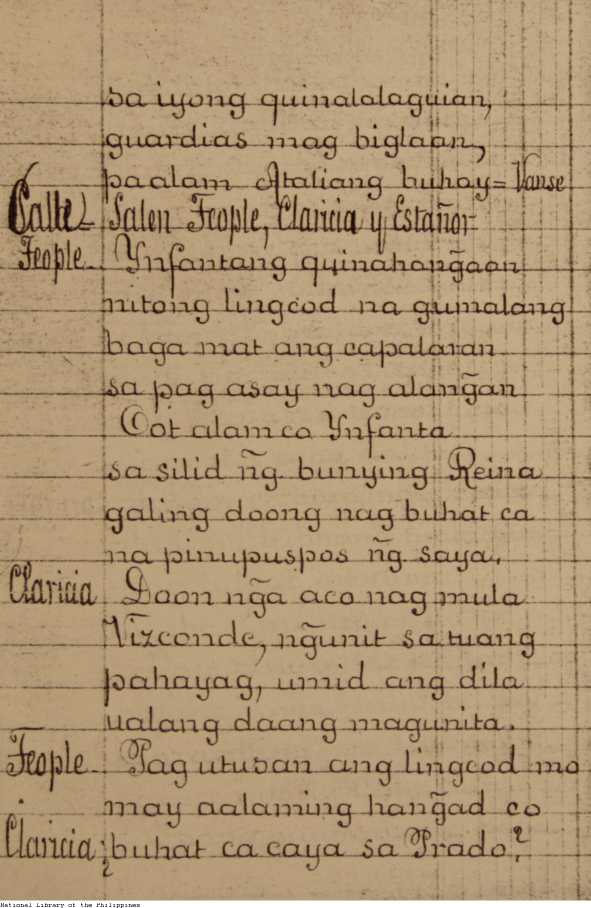 sa iyong quinalalaguian,
guardias mag biglaan,
paalam Ytaliang buhay = Vanse
Calle2 Salen Feople, Claricia y Estañor
Feople Ynfantang quinahang̃aan
nitong lingcod na gumalang
baga mat ang capalaran
sa pag asay nag alang̃an
Oot alam co Ynfanta
sa silid ñg. bunying Reina
galing doong nag buhat ca
na pinupuspos ñg. saya.
Claricia Doon ng̃a aco nag mula
Vizconde, ng̃unit sa tuang
pahayag, umid ang dila
ualang daang magunita.
Feople Pag utusan ang lingcod mo
may aalaming hang̃ad co
Claricia ¿buhat ca caya sa Prado?
National Library of the Philippines